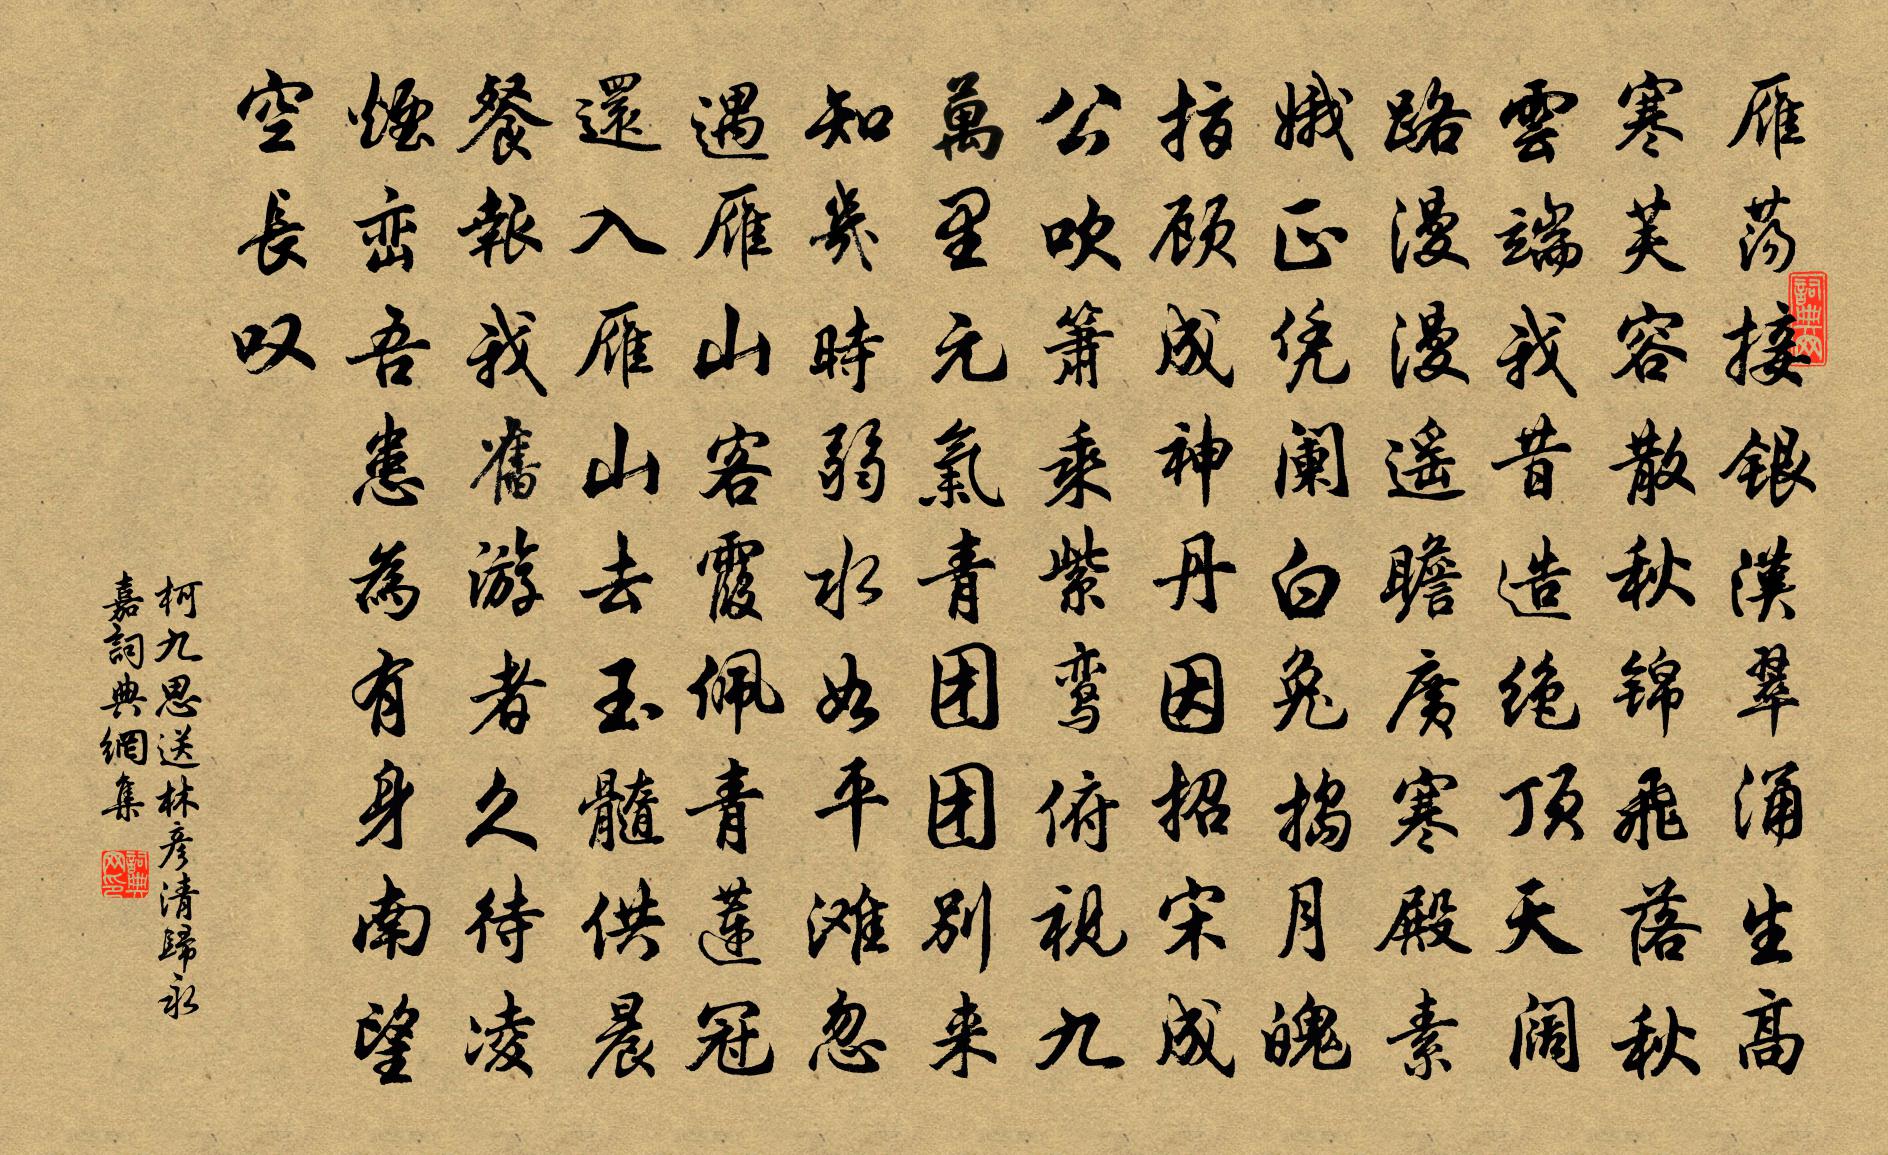 雁荡接銀漢翠涌生高
寒芙容散秋锦飛落秋
雲端我昔造绝顶天阔
路漫漫遥瞻广寒殿素
娥正凭阑白兔捣月魄
指顾成神丹因招宋成
公吹箫乘紫鸾俯視九
萬里元氣青团团别来
知幾時弱水如平滩忽
遇雁山客霞佩青蓮冠
還入雁山去玉髓供晨
餐報我舊游者久待凌
煙峦吾患為有身南望
空長叹
柯九思送林彦清歸永
嘉詞典網集
詞典网
詞典网印